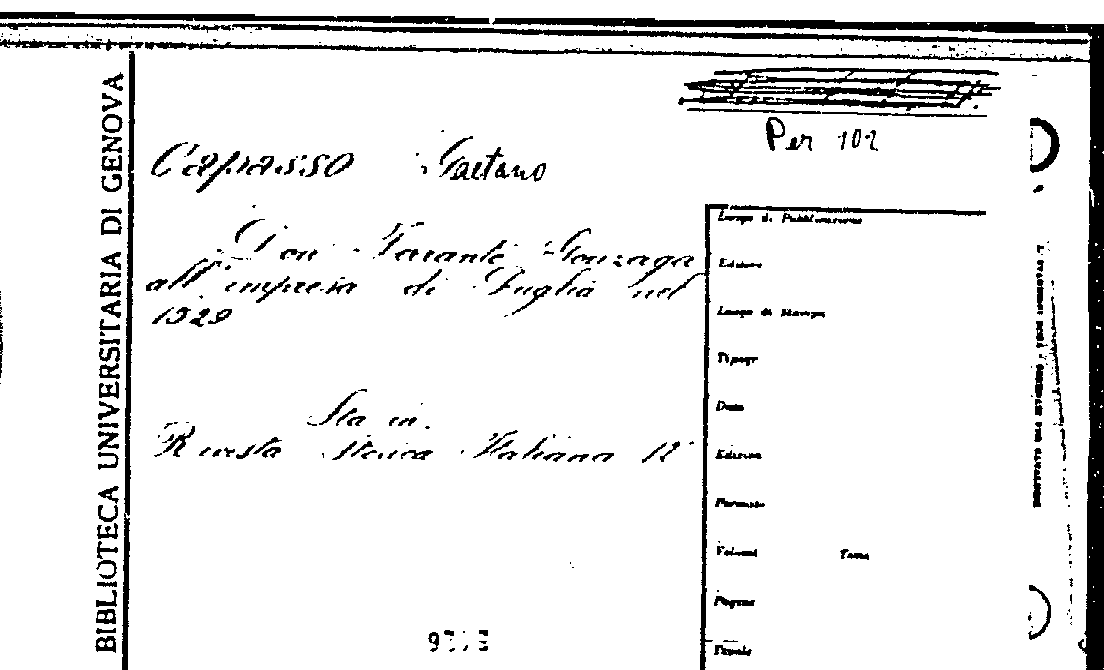 BIBLIOTECA UNIVERSITARIA DI GENOVA
Per 102
Capasso Gaetano
Don Ferrante Gonzaga
all'impresa di Puglia nel
1529
Sta in.
Rivista Storica Italiana 12
Luogo di Pubblicazione
Editore
Luogo di Stampa
Tipogr
Data
Edizione
Formato
Volumi Tomi
Pagine
Tavole